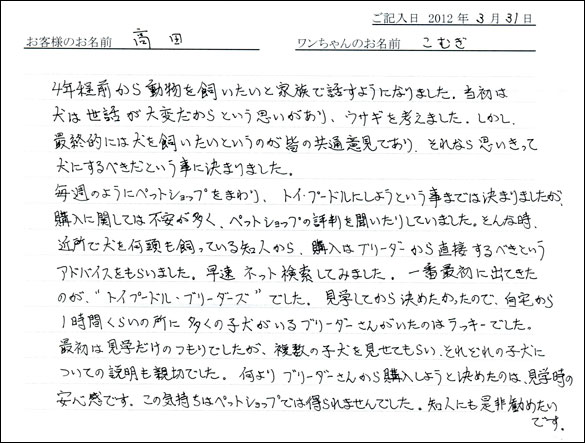 ご記入日 2012 年 3 月 31 日
お客様のお名前 高田 ワンちゃんのお名前 こむぎ
4年程前から動物を飼いたいと家族で話すようになりました。当初は
犬は世話が大変だからという思いがあり、ウサギを考えました。しかし、
最終的には犬を飼いたいというのが皆の共通意見であり、それなら思いきって
犬にするべきだという事に決まりました。
毎週のようにペットショップをまわり、トイ・プードルにしようという事までは決まりましたが、
購入に関しては不安が多く、ペットショップの評判を聞いたりしていました。そんな時、
近所で犬を何頭も飼っている知人から、購入はブリーダーから直接するべきという
アドバイスをもらいました。早速ネット検索してみました。一番最初に出てきた
のが、"トイプードル・ブリーダーズ"でした。見学してから決めたかったので、自宅から
1時間くらいの所に多くの子犬がいるブリーダーさんがいたのはラッキーでした。
最初は見学だけのつもりでしたが、複数の子犬を見せてもらい、それぞれの子犬に
ついての説明も親切でした。何よりブリーダーさんから購入しようと決めたのは、見学時の
安心感です。この気持ちはペットショップでは得られませんでした。知人にも是非勧めたい
です。